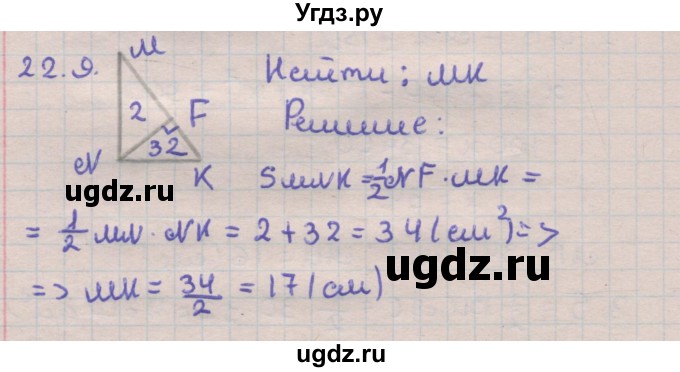 Угдз.ру
22.9.
M
Найти: MK
2
F
Решение:
32
N
K
S MNK = 1/2 NF · MK =
ugdz.ru
= 1/2 MN · NK = 2 + 32 = 34 (см²) =>
ugdz.ru
=> MK = 34/2 = 17 (см)
ugdz.ru